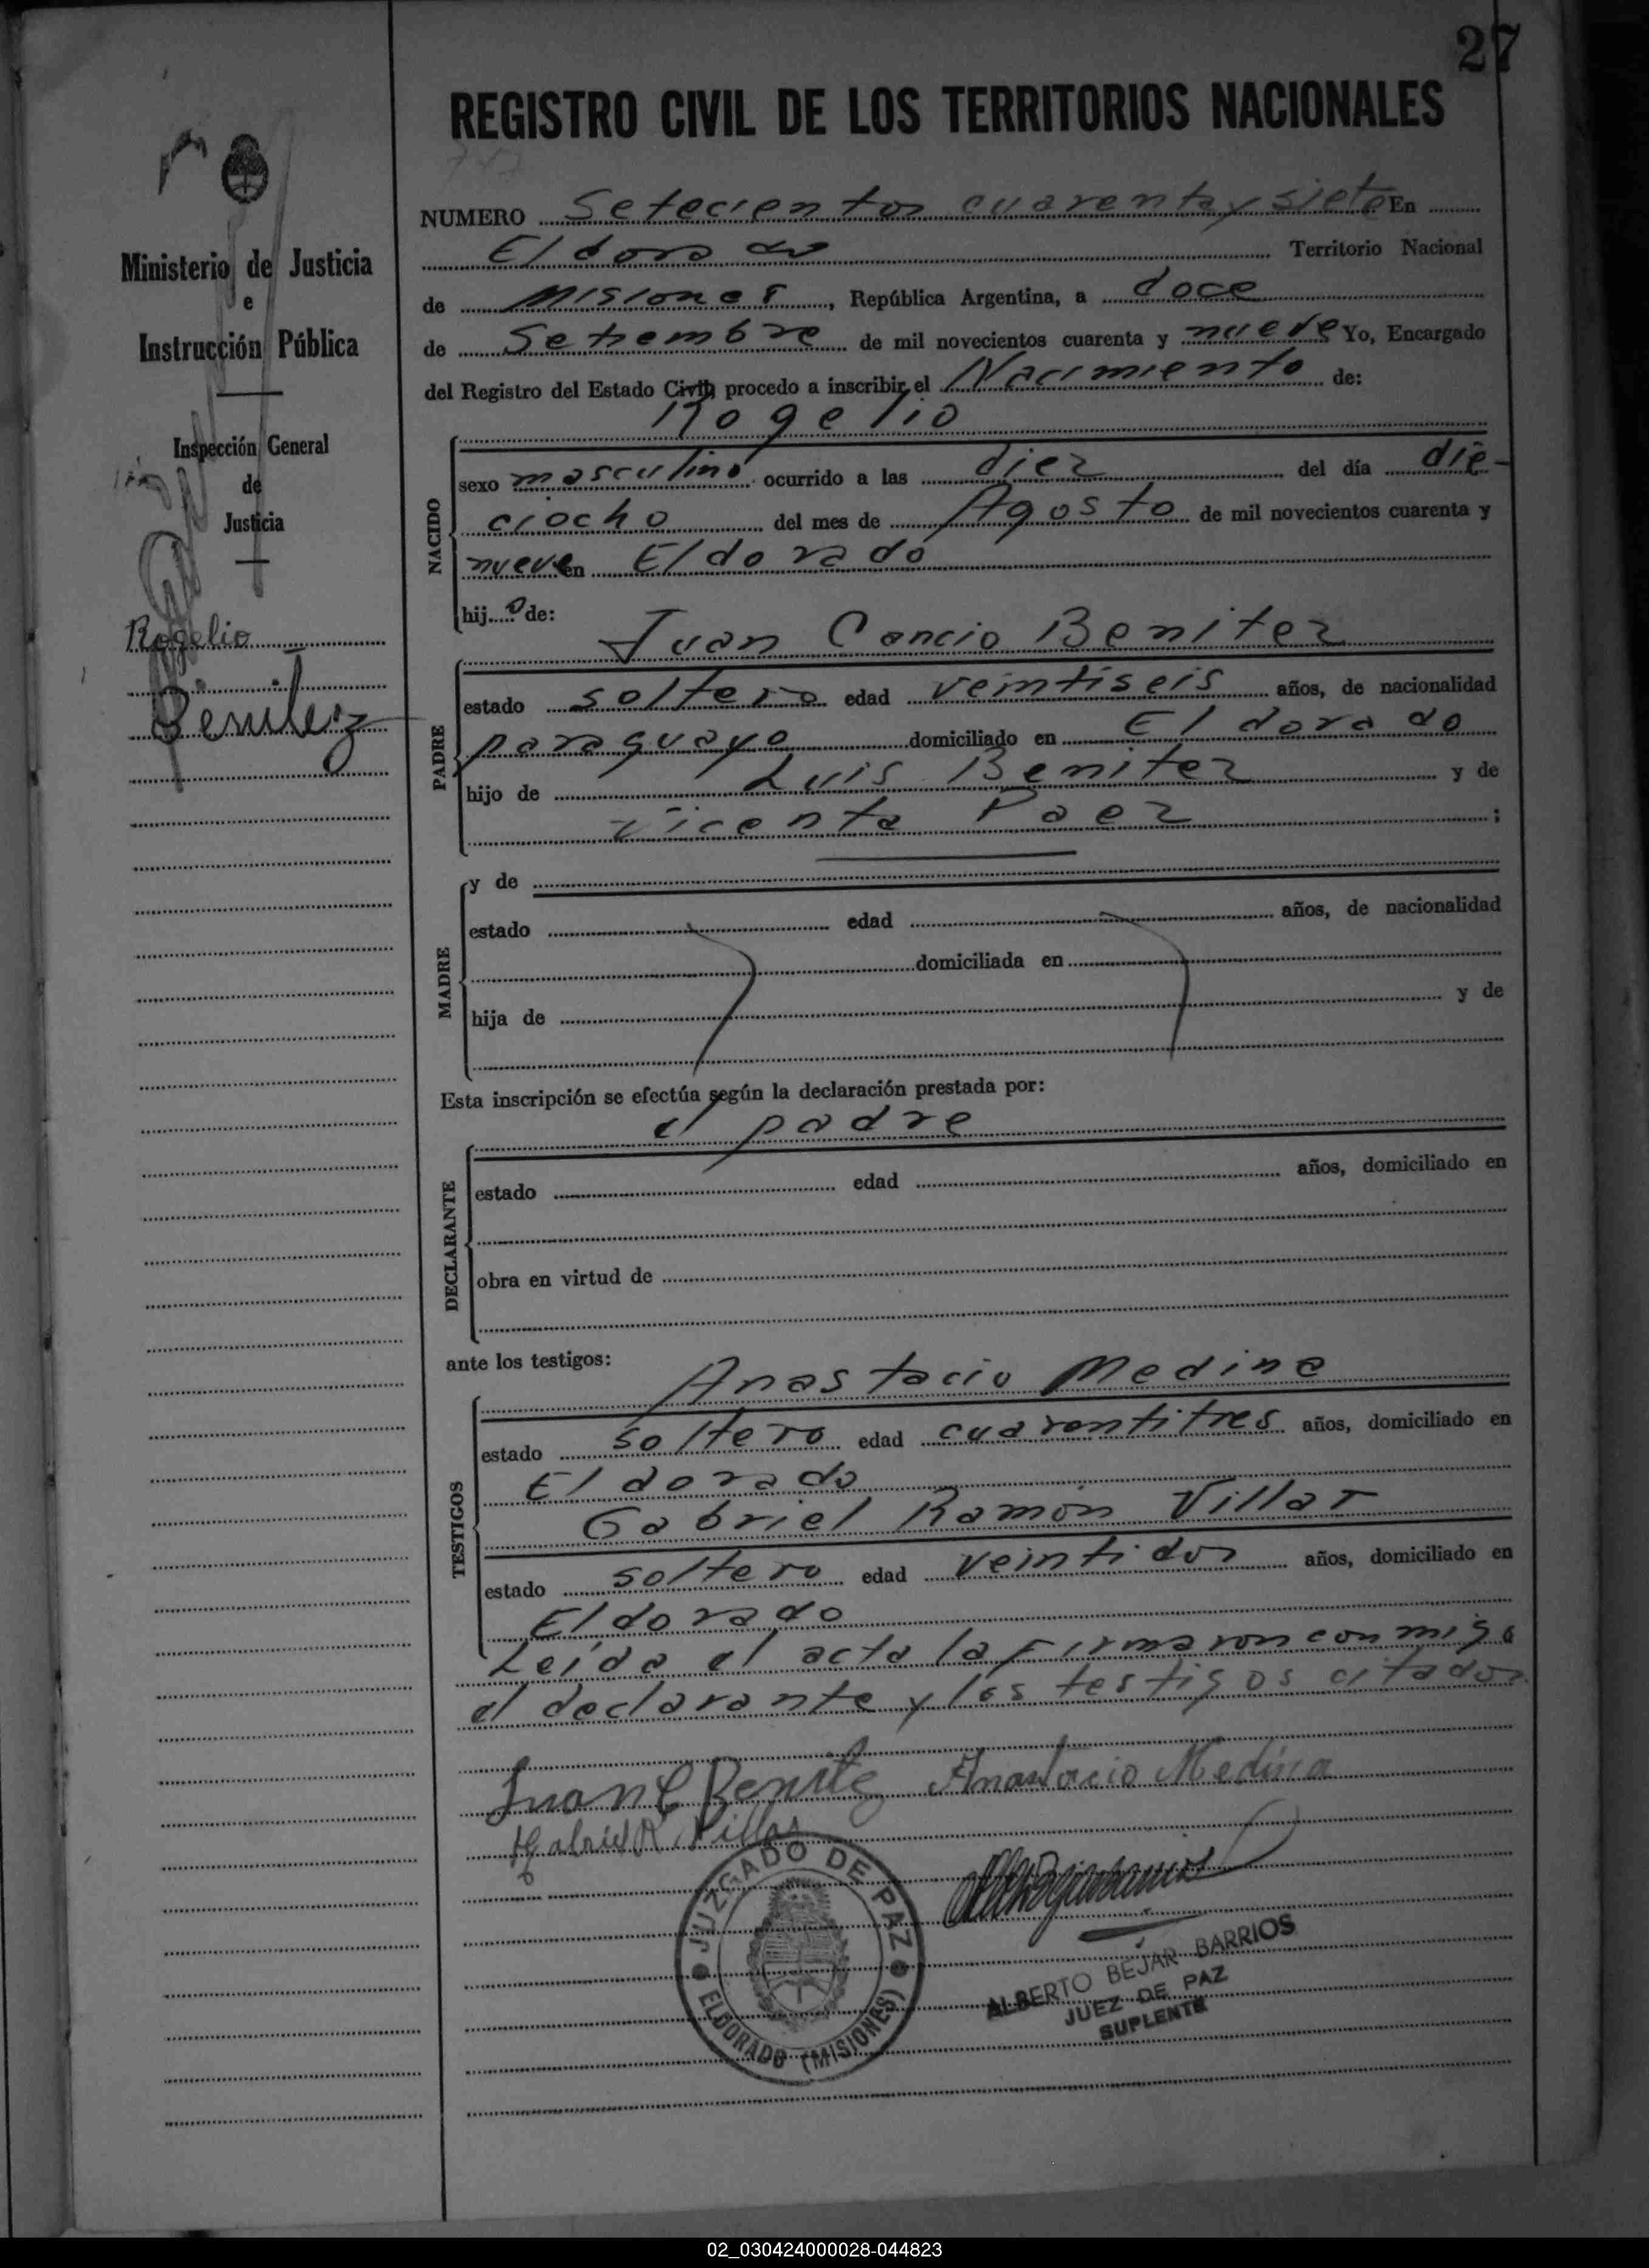 27
REGISTRO CIVIL DE LOS TERRITORIOS NACIONALES
747
Ministerio de Justicia
e
Instrucción Pública
Inspección General
de
Justicia
Rogelio
Benitez
NUMERO Setecientos cuarenta y siete En
Eldorado Territorio Nacional
de Misiones, República Argentina, a doce
de Setiembre de mil novecientos cuarenta y nueve Yo, Encargado
del Registro del Estado Civil, procedo a inscribir el Nacimiento de:
Rogelio
NACIDO
sexo masculino ocurrido a las diez del día die-
ciocho del mes de Agosto de mil novecientos cuarenta y
nueve en Eldorado
hijo de:
Juan Cancio Benitez
PADRE
estado soltero edad veintiseis años, de nacionalidad
paraguayo domiciliado en Eldorado
hijo de Luis Benitez y de
Vicenta Paez ;
MADRE
y de
estado edad años, de nacionalidad
domiciliada en
hija de y de
Esta inscripción se efectúa según la declaración prestada por:
el padre
DECLARANTE
estado edad años, domiciliado en
obra en virtud de
ante los testigos:
Anastacio Medina
TESTIGOS
estado soltero edad cuarentitres años, domiciliado en
Eldorado
Gabriel Ramón Villar
estado soltero edad veintidos años, domiciliado en
Eldorado
Leída el acta la firmaron conmigo
el declarante y los testigos citados
Juan C Benitez Anastacio Medina
Gabriel R. Villar
JUZGADO DE PAZ
ELDORADO (MISIONES)
ALBERTO BEJAR BARRIOS
JUEZ DE PAZ
SUPLENTE
02_030424000028-044823